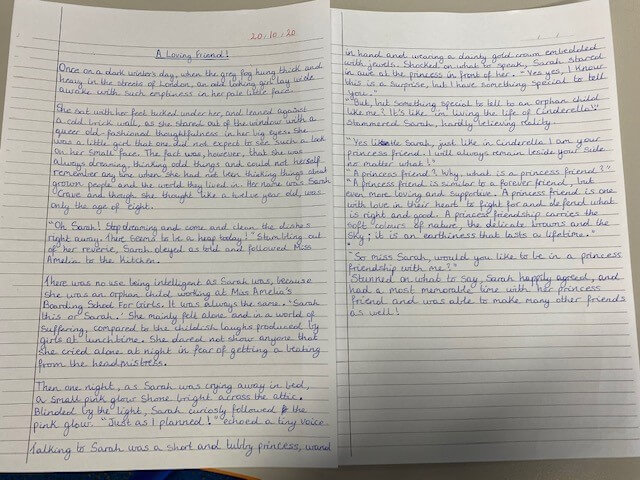 20.10.20
A Loving Friend!
Once on a dark winter's day, when the grey fog hung thick and
heavy in the streets of London, an odd looking girl lay wide
awake with such emptiness in her pale little face.
She sat with her feet tucked under her, and leaned against
a cold brick wall, as she stared out of the window with a
queer old-fashioned thoughtfulness in her big eyes. She
was a little girl that one did not expect to see such a look
on her small face. The fact was, however, that she was
always dreaming, thinking odd things and could not herself
remember any time when she had not been thinking things about
grown people and the world they lived in. Her name was Sarah
Crave and though she thought like a twelve year old, was
only the age of eight.
"Oh Sarah! Stop dreaming and come and clean the dishes
right away. There seems to be a heap today!" Stumbling out
of her reverie, Sarah obeyed as told and followed Miss
Amelia to the kitchen.
There was no use being intelligent as Sarah was, because
she was an orphan child working at Miss Amelia's
Boarding School For Girls. It was always the same. 'Sarah
this or Sarah.' She mainly felt alone and in a world of
suffering, compared to the childish laughs produced by
girls at lunchtime. She dared not show anyone that
she cried alone at night in fear of getting a beating
from the headmistress.
Then one night, as Sarah was crying away in bed,
a small pink glow shone bright across the attic.
Blinded by the light, Sarah curiosly followed the
pink glow. "Just as I planned!" echoed a tiny voice.
Talking to Sarah was a short and tubby princess, wand
in hand and wearing a dainty gold crown embedded
with jewels. Shocked on what to speak, Sarah stared
in awe at the princess in front of her. "Yes yes, I know
this is a surprise, but I have something special to tell
you."
"But, but something special to tell to an orphan child
like me? It's like im living the life of Cinderella?!"
Stammered Sarah, hardly believing reality.
"Yes Sarah, just like in Cinderella I am your
princess friend. I will always remain beside your side no
matter what!"
"A princess friend? Why, what is a princess friend?"
"A princess friend is similar to a forever friend, but
even more loving and supportive. A princess friend is one
with love in their heart to fight for and defend what
is right and good. A princess friendship carries the
soft colours of nature, the delicate browns and the
sky; it is an earthiness that lasts a lifetime."
"So miss Sarah, would you like to be in a princess
friendship with me?"
Stunned on what to say, Sarah happily agreed, and
had a most memorable time with her princess
friend and was able to make many other friends
as well!